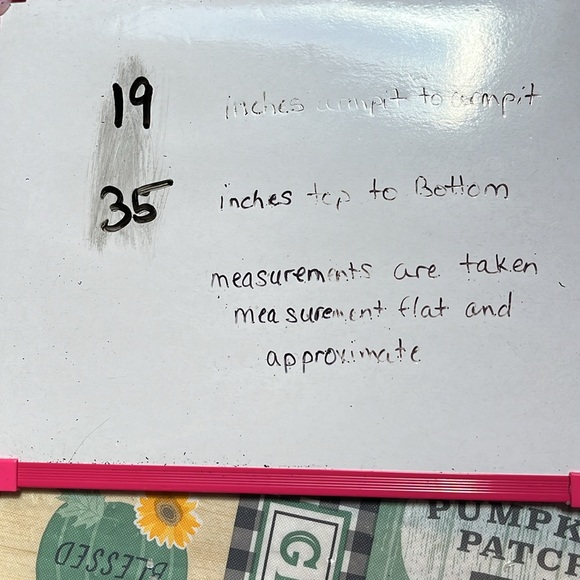 19 inches armpit to armpit
35 inches top to Bottom
measurements are taken
measurement flat and
approximate
BLESSED
PUMPK
PATC